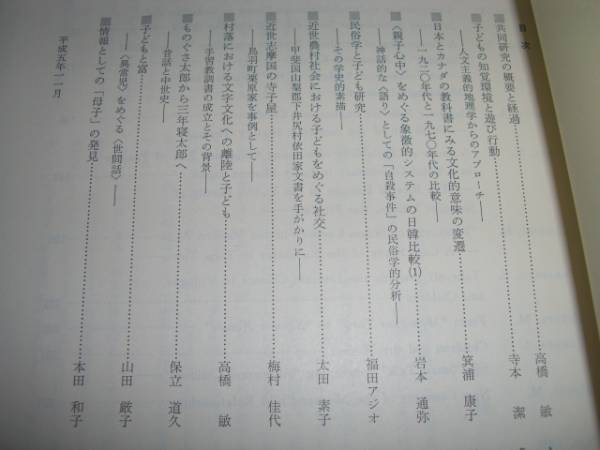 目次
■共同研究の概要と経過……高橋 敏
■子どもの知覚環境と遊び行動……寺本 潔
――人文主義的地理学からのアプローチ――
■日本とカナダの教科書にみる文化的意味の変遷……箕浦 康子
――一九二〇年代と一九七〇年代の比較――
■〈親子心中〉をめぐる象徴的システムの日韓比較(1)……岩本 通弥
――神話的な〈語り〉としての「自殺事件」の民俗学的分析――
■民俗学と子ども研究……福田アジオ
――その学史的素描――
■近世農村社会における子どもをめぐる社交……太田 素子
――甲斐国山梨郡下井尻村依田家文書を手がかりに――
■近世志摩国の寺子屋……梅村 佳代
――鳥羽町栗原家を事例として――
■村落における文字文化への離陸と子ども……高橋 敏
――手習教訓書の成立とその背景――
■ものぐさ太郎から三年寝太郎へ……保立 道久
――昔話と中世史――
■子どもと富……山田 厳子
――〈異常児〉をめぐる〈世間話〉――
■情報としての「母子」の発見……本田 和子
平成五年一一月